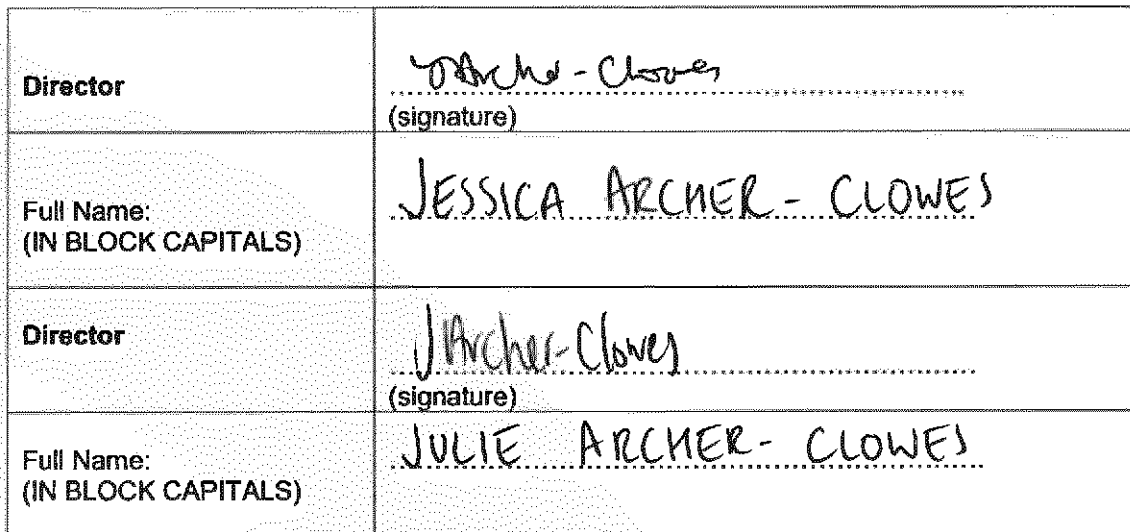 Director
JArcher-Clowes
(signature)
Full Name:
(IN BLOCK CAPITALS)
JESSICA ARCHER - CLOWES
Director
JArcher-Clowes
(signature)
Full Name:
(IN BLOCK CAPITALS)
JULIE ARCHER - CLOWES